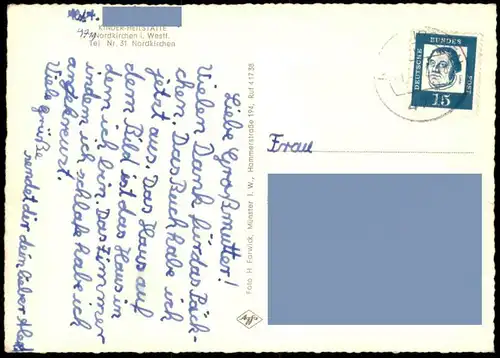 Abt.
KINDER-HEILSTÄTTE
Nordkirchen i. Westf.
Tel Nr. 31 Nordkirchen
Liebe Großmutter!
Vielen Dank für das Päck-
chen. Das Buch habe ich
jetzt aus. Das Haus auf
dem Bild ist das Haus in
dem ich bin. Das Zimmer
indem ich schlafe habe ich
angekreuzt.
Viele grüße
sendet dir dein lieber Axel
Foto H. Farwick, Münster i. W., Hammerstraße 194, Ruf 41738
DEUTSCHE
BUNDES
POST
15
Frau